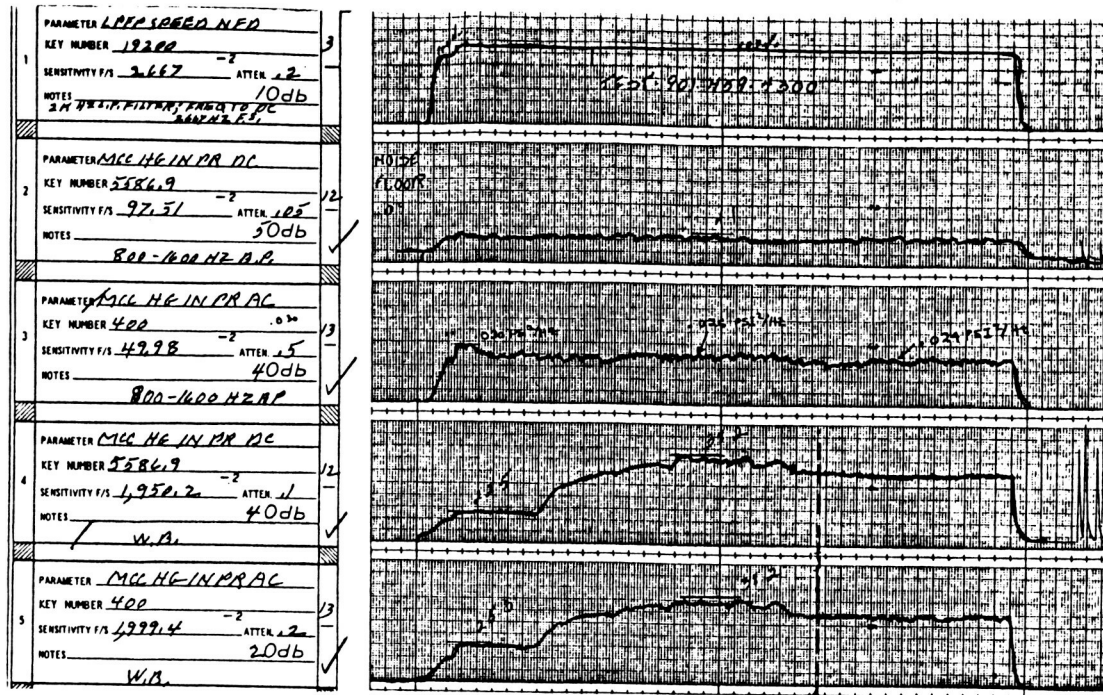 PARAMETER LPFP SPEED NFD
KEY NUMBER 19200
SENSITIVITY F/S 2667 -2 ATTEN. .2
NOTES 10db
2K HZ L.P. FILTER; FREQ TO DC
2667 HZ F.S.
1
3
PARAMETER MCC HG IN PR DC
KEY NUMBER 5586.9
SENSITIVITY F/S 97.51 -2 ATTEN. .05
NOTES 50db
800-1600 HZ B.P.
2
12
NOISE
FLOOR
PARAMETER MCC HG IN PR AC
KEY NUMBER 400 .020
SENSITIVITY F/S 49.98 -2 ATTEN. .5
NOTES 40db
800-1600 HZ BP
3
13
.030 PSI²/HZ
.025 PSI²/HZ
.024 PSI²/HZ
PARAMETER MCC HG IN PR DC
KEY NUMBER 5586.9
SENSITIVITY F/S 1,950.2 -2 ATTEN. .1
NOTES 40db
W.B.
4
12
PARAMETER MCC HG IN PR AC
KEY NUMBER 400
SENSITIVITY F/S 1,999.4 -2 ATTEN. .2
NOTES 20db
W.B.
5
13